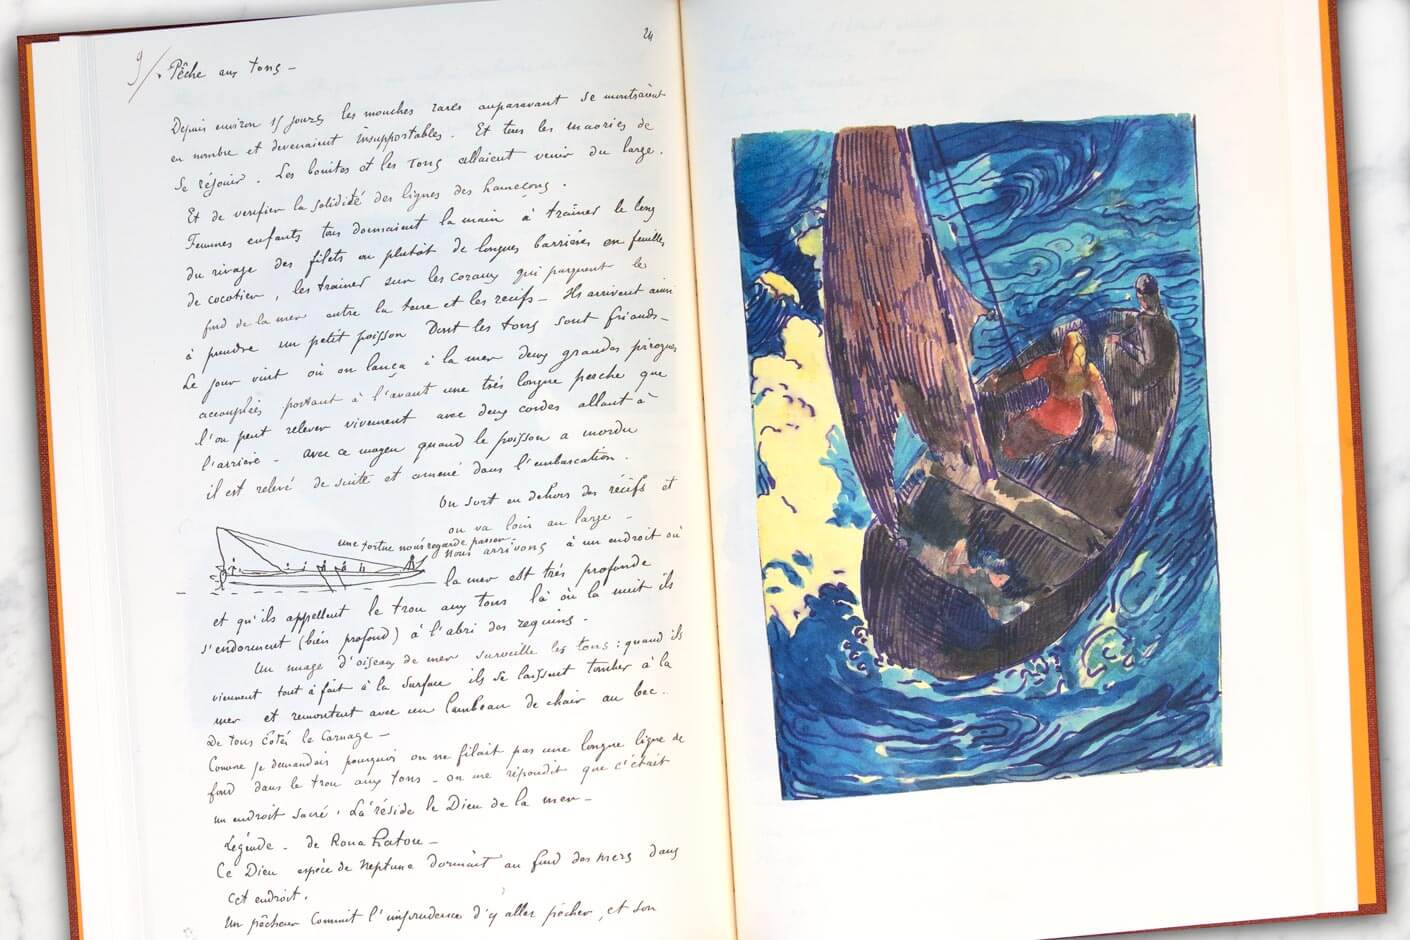 24
9/. Pêche aux tons —
Depuis environ 15 jours les mouches rares auparavant se montraient
en nombre et devenaient insupportables. Et tous les maories de
se réjouir. Les bonites et les tons allaient venir du large.
Et de verifier la solidité des lignes des hameçons.
Femmes enfants tous donnaient la main à traîner le long
du rivage des filets ou plutôt de longues barrières en feuilles
de cocotier, les trainer sur les coraux qui parquent le
fond de la mer entre la terre et les recifs — Ils arrivent ainsi
à prendre un petit poisson dont les tons sont friands —
Le jour vint où on lança à la mer deux grandes pirogues
accouplées portant à l'avant une très longue perche que
l'on peut relever vivement avec deux cordes allant à
l'arrière — avec ce moyen quand le poisson a mordu
il est relevé de suite et amené dans l'embarcation.
On sort en dehors des récifs et
on va loin au large —
une tortue nous regarde passer.
Nous arrivons à un endroit où
la mer est très profonde
et qu'ils appellent le trou aux tons là où la nuit ils
s'endorment (bien profond) à l'abri des requins.
Un nuage d'oiseaux de mer surveille les tons : quand ils
viennent tout à fait à la surface ils se laissent tomber à la
mer et remontent avec un lambeau de chair au bec.
De tous cotés le carnage —
Comme je demandais pourquoi on ne filait pas une longue ligne de
fond dans le trou aux tons — on me répondit que c'était
un endroit sacré. Là réside le Dieu de la mer —
Légende — de Roua hatou —
Ce Dieu espèce de Neptune dormait au fond des mers dans
cet endroit.
Un pêcheur commit l'imprudence d'y aller pêcher, et son